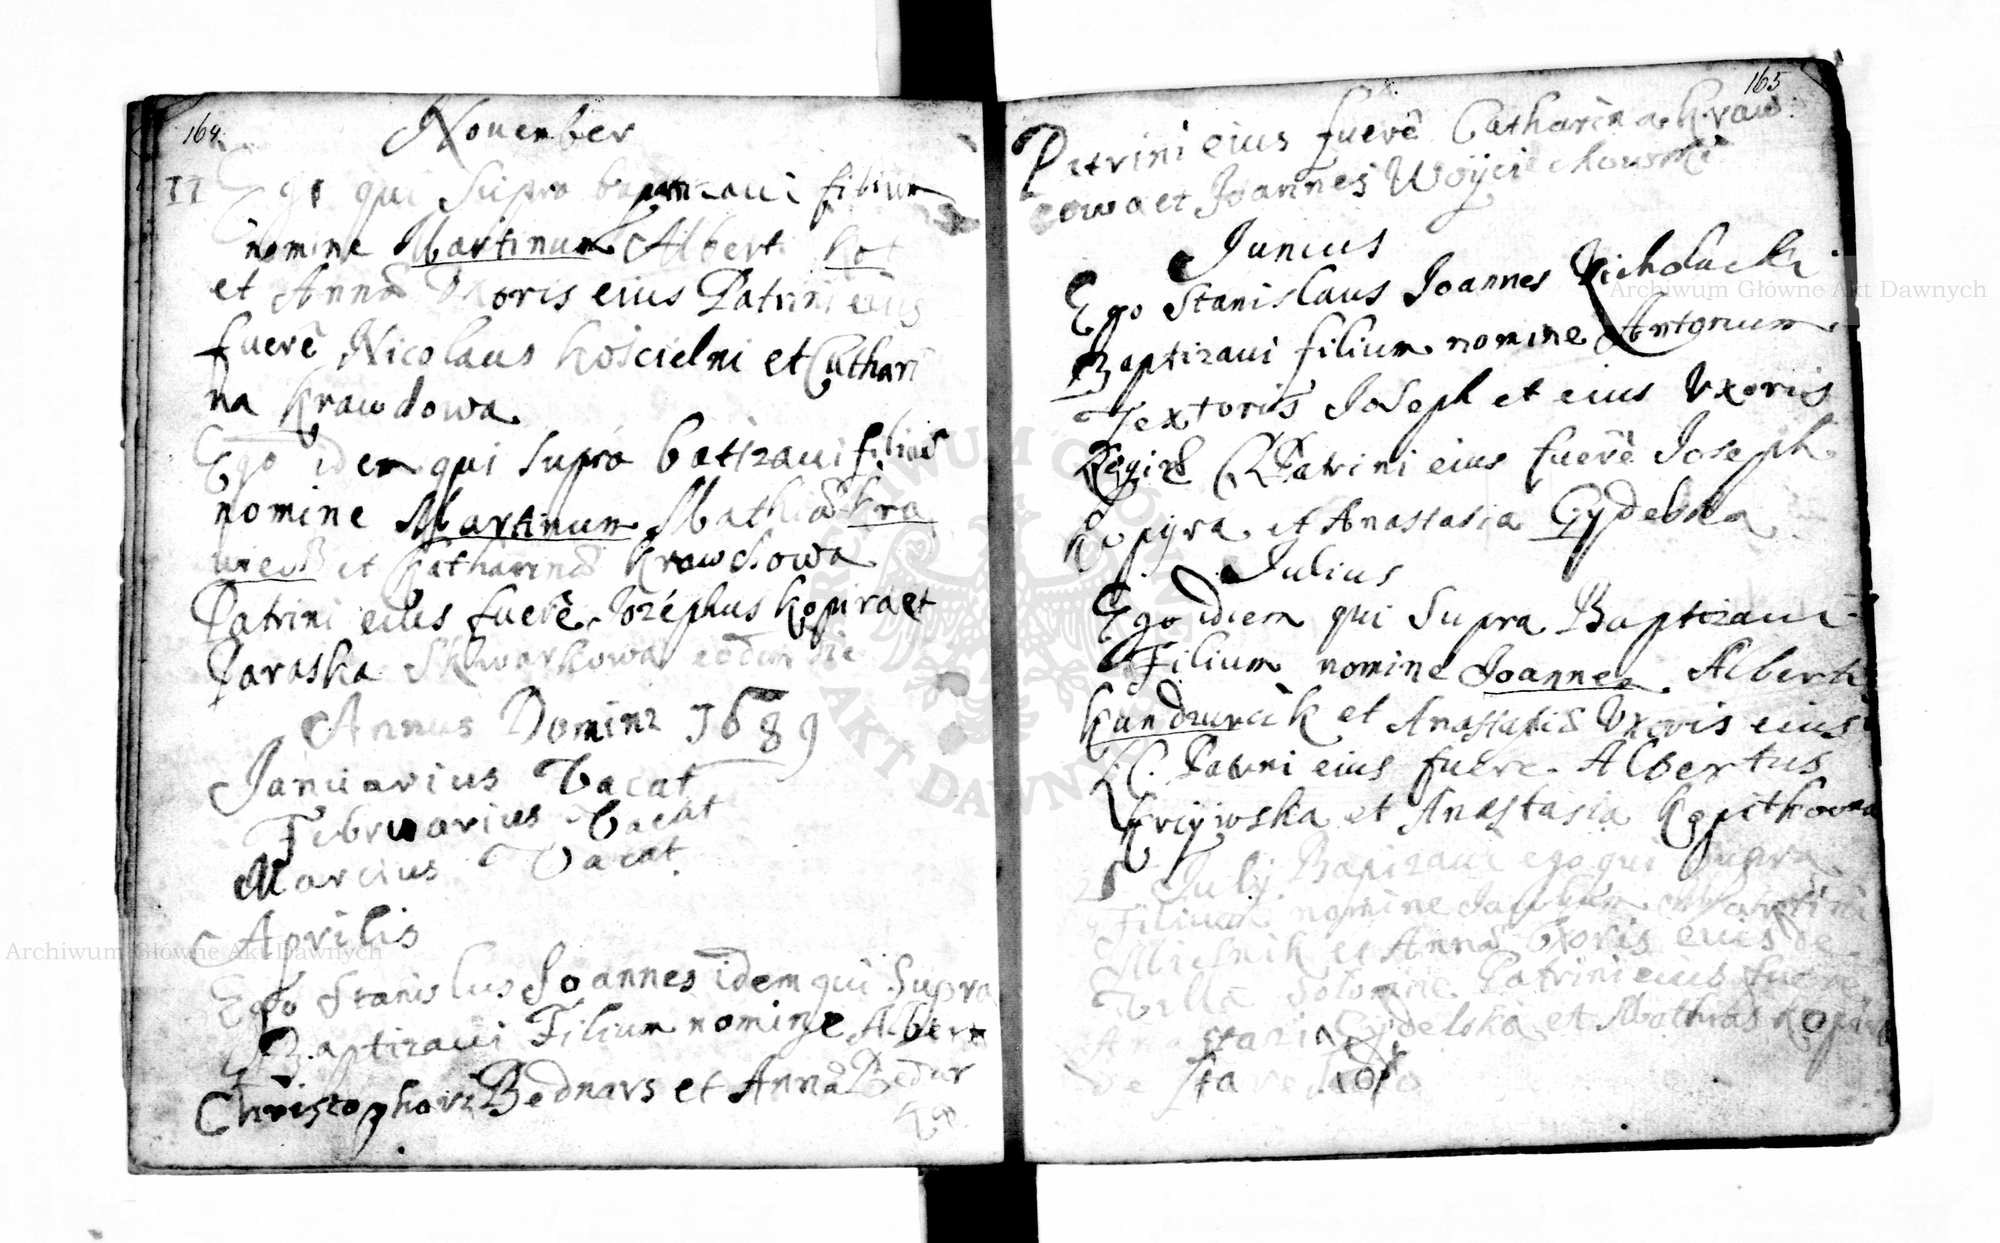 164.
Nouember
11 Ego qui Supra baptizaui filium
nomine Martinum Alberti Kot
et Annæ Vxoris eius Patrini eius
fuerẽ Nicolaus Koscielni et Cathari
na Krawdowa
Ego idem qui Supra batizaui filium
nomine Martinum Mathiæ Kra
wiec et Katharinæ Krawdowa
Patrini eius fuerẽ Jozephus Kopira et
Paraska Skwarkowa eodem die
Annus Domini 1689
Januarius Vacat
Februarius Vacat
Marcius Vacat
Aprilis
Ego Stanislus Joannes idem qui Supra
Baptizaui Filium nomine Albert
Christophori Bednars et Annæ Bednar
165
Patrini eius fuerẽ Catharina Kraw
cowa et Joannes Woyciechowski
Junius
Ego Stanislaus Joannes
Baptizaui filium nomine Antonium
Textoris Joseph et eius Vxoris
Reginæ Patrini eius fuerẽ Joseph
Kopyra et Anastasia Gydelska
Julius
Ego idem qui Supra Baptizaui
Filium nomine Joannem Alberti
Kandzurcik et Anastasiæ Vxoris eius
Patrini eius fuere Albertus
et Anastasia Kopitkowa
Julÿ Baptizaui ego qui Supra
Filium nomine Jacobum Martini
Mielnik et Annæ Vxoris eius de
Villa Patrini eius fuerẽ
Anastazia Gydelska et Mathias Kopir
de
Archiwum Główne Akt Dawnych
Archiwum Główne Akt Dawnych
ARCHIWUM GŁÓWNE AKT DAWNYCH